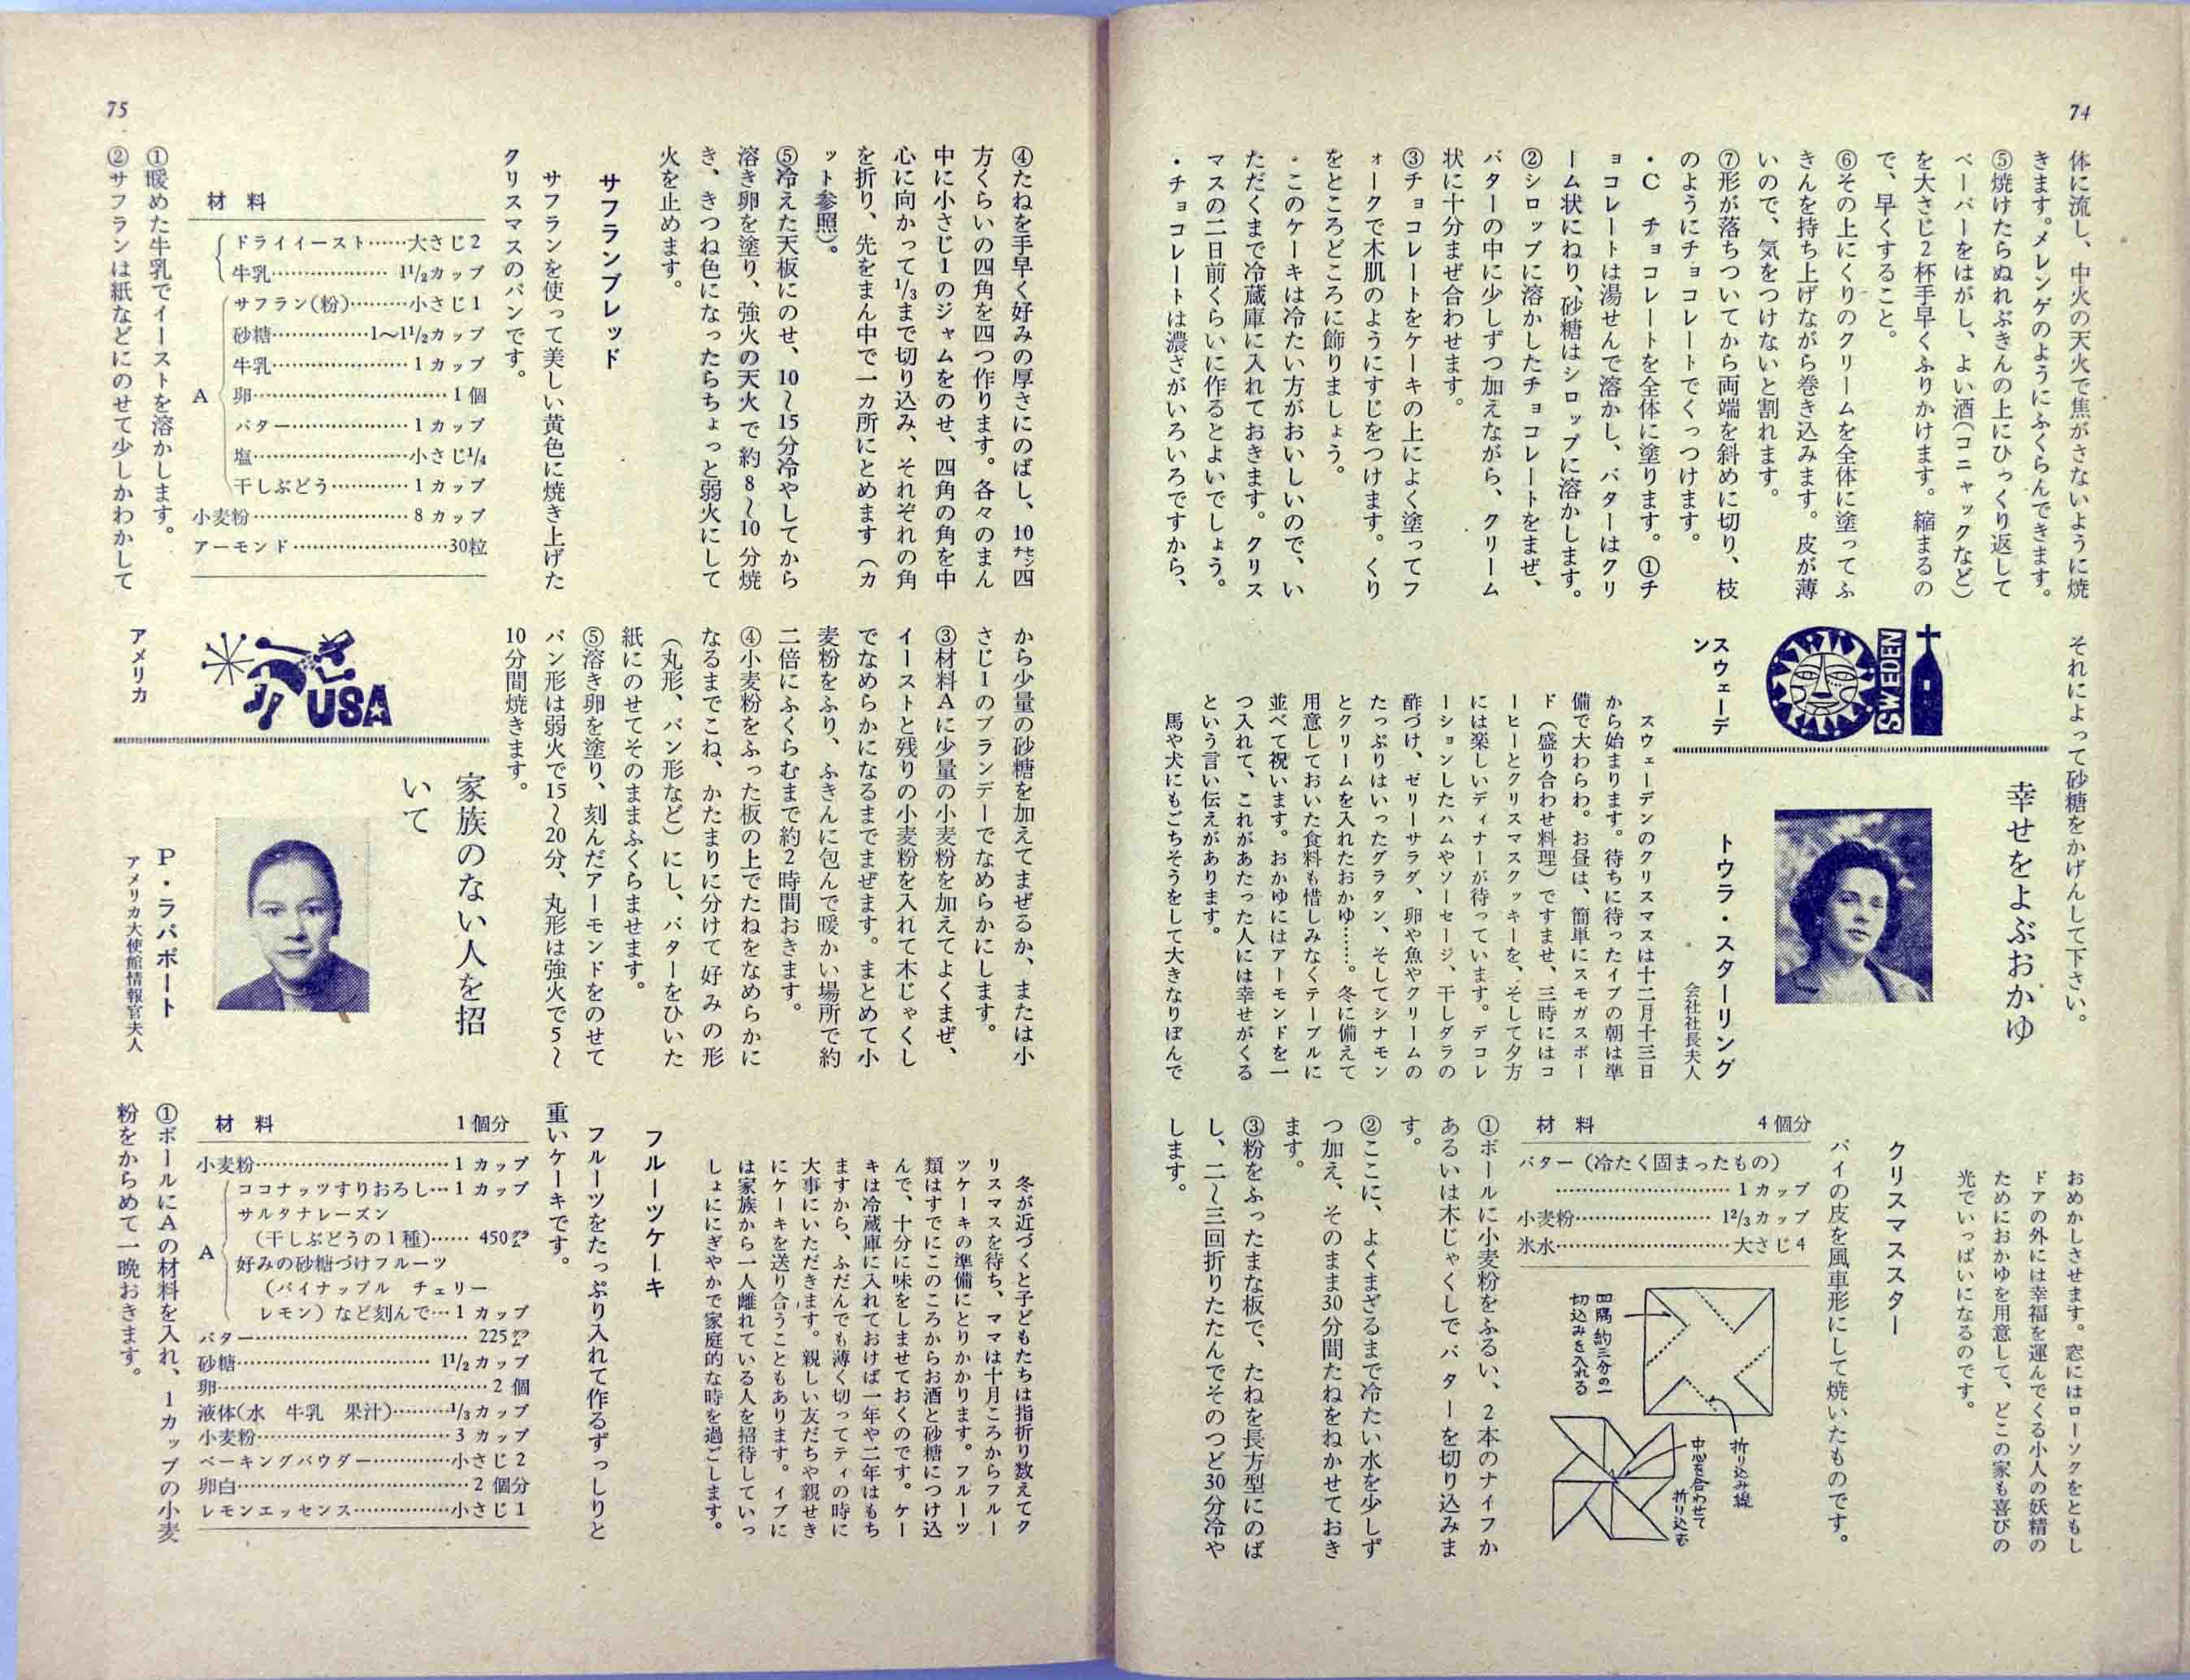 74
体に流し、中火の天火で焦がさないように焼
きます。メレンゲのようにふくらんできます。
⑤焼けたらぬれぶきんの上にひっくり返して
ペーパーをはがし、よい酒(コニャックなど)
を大さじ2杯手早くふりかけます。縮まるの
で、早くすること。
⑥その上にくりのクリームを全体に塗ってふ
きんを持ち上げながら巻き込みます。皮が薄
いので、気をつけないと割れます。
⑦形が落ちついてから両端を斜めに切り、枝
のようにチョコレートでくっつけます。
・C チョコレートを全体に塗ります。①チ
ョコレートは湯せんで溶かし、バターはクリ
ーム状にねり、砂糖はシロップに溶かします。
②シロップに溶かしたチョコレートをまぜ、
バターの中に少しずつ加えながら、クリーム
状に十分まぜ合わせます。
③チョコレートをケーキの上によく塗ってフ
ォークで木肌のようにすじをつけます。くり
をところどころに飾りましょう。
・このケーキは冷たい方がおいしいので、い
ただくまで冷蔵庫に入れておきます。クリス
マスの二日前くらいに作るとよいでしょう。
・チョコレートは濃さがいろいろですから、
それによって砂糖をかげんして下さい。
SWEDEN
スウェーデン
幸せをよぶおかゆ
トウラ・スターリング
会社社長夫人
スウェーデンのクリスマスは十二月十三日
から始まります。待ちに待ったイブの朝は準
備で大わらわ。お昼は、簡単にスモガスボー
ド(盛り合わせ料理)ですませ、三時にはコ
ーヒーとクリスマスクッキーを、そして夕方
には楽しいディナーが待っています。デコレ
ーションしたハムやソーセージ、干しダラの
酢づけ、ゼリーサラダ、卵や魚やクリームの
たっぷりはいったグラタン、そしてシナモン
とクリームを入れたおかゆ……。冬に備えて
用意しておいた食料も惜しみなくテーブルに
並べて祝います。おかゆにはアーモンドを一
つ入れて、これがあたった人には幸せがくる
という言い伝えがあります。
馬や犬にもごちそうをして大きなりぼんで
おめかしさせます。窓にはローソクをともし
ドアの外には幸福を運んでくる小人の妖精の
ためにおかゆを用意して、どこの家も喜びの
光でいっぱいになるのです。
クリスマススター
パイの皮を風車形にして焼いたものです。
材料 4個分
バター(冷たく固まったもの)
……………1カップ
小麦粉……………1⅔カップ
氷水……………大さじ4
四隅 約三分の一
切込みを入れる
折り込み線
中心を合わせて
折り込む
①ボールに小麦粉をふるい、2本のナイフか
あるいは木じゃくしでバターを切り込みま
す。
②ここに、よくまざるまで冷たい水を少しず
つ加え、そのまま30分間たねをねかせておき
ます。
③粉をふったまな板で、たねを長方型にのば
し、二〜三回折りたたんでそのつど30分冷や
します。
75
④たねを手早く好みの厚さにのばし、10センチ四
方くらいの四角を四つ作ります。各々のまん
中に小さじ1のジャムをのせ、四角の角を中
心に向かって⅓まで切り込み、それぞれの角
を折り、先をまん中で一カ所にとめます(カ
ット参照)。
⑤冷えた天板にのせ、10〜15分冷やしてから
溶き卵を塗り、強火の天火で約8〜10分焼
き、きつね色になったらちょっと弱火にして
火を止めます。
サフランブレッド
サフランを使って美しい黄色に焼き上げた
クリスマスのパンです。
材料
ドライイースト……大さじ2
牛乳……………1½カップ
A
サフラン(粉)………小さじ1
砂糖……………1〜1½カップ
牛乳……………1カップ
卵……………1個
バター……………1カップ
塩……………小さじ¼
干しぶどう…………1カップ
小麦粉……………8カップ
アーモンド……………30粒
①暖めた牛乳でイーストを溶かします。
②サフランは紙などにのせて少しかわかして
から少量の砂糖を加えてまぜるか、または小
さじ1のブランデーでなめらかにします。
③材料Aに少量の小麦粉を加えてよくまぜ、
イーストと残りの小麦粉を入れて木じゃくし
でなめらかになるまでまぜます。まとめて小
麦粉をふり、ふきんに包んで暖かい場所で約
二倍にふくらむまで約2時間おきます。
④小麦粉をふった板の上でたねをなめらかに
なるまでこね、かたまりに分けて好みの形
(丸形、パン形など)にし、バターをひいた
紙にのせてそのままふくらませます。
⑤溶き卵を塗り、刻んだアーモンドをのせて
パン形は弱火で15〜20分、丸形は強火で5〜
10分間焼きます。
USA
アメリカ
家族のない人を招
いて
P・ラパポート
アメリカ大使館情報官夫人
冬が近づくと子どもたちは指折り数えてク
リスマスを待ち、ママは十月ころからフルー
ツケーキの準備にとりかかります。フルーツ
類はすでにこのころからお酒と砂糖につけ込
んで、十分に味をしませておくのです。ケー
キは冷蔵庫に入れておけば一年や二年はもち
ますから、ふだんでも薄く切ってティの時に
大事にいただきます。親しい友だちや親せき
にケーキを送り合うこともあります。イブに
は家族から一人離れている人を招待していっ
しょににぎやかで家庭的な時を過ごします。
フルーツケーキ
フルーツをたっぷり入れて作るずっしりと
重いケーキです。
材料 1個分
小麦粉……………1カップ
A
ココナッツすりおろし…1カップ
サルタナレーズン
(干しぶどうの1種)……450グラム
好みの砂糖づけフルーツ
(パイナップル チェリー
レモン)など刻んで…1カップ
バター……………225グラム
砂糖……………1½カップ
卵……………2個
液体(水 牛乳 果汁)………⅓カップ
小麦粉……………3カップ
ベーキングパウダー…………小さじ2
卵白……………2個分
レモンエッセンス……………小さじ1
①ボールにAの材料を入れ、1カップの小麦
粉をからめて一晩おきます。